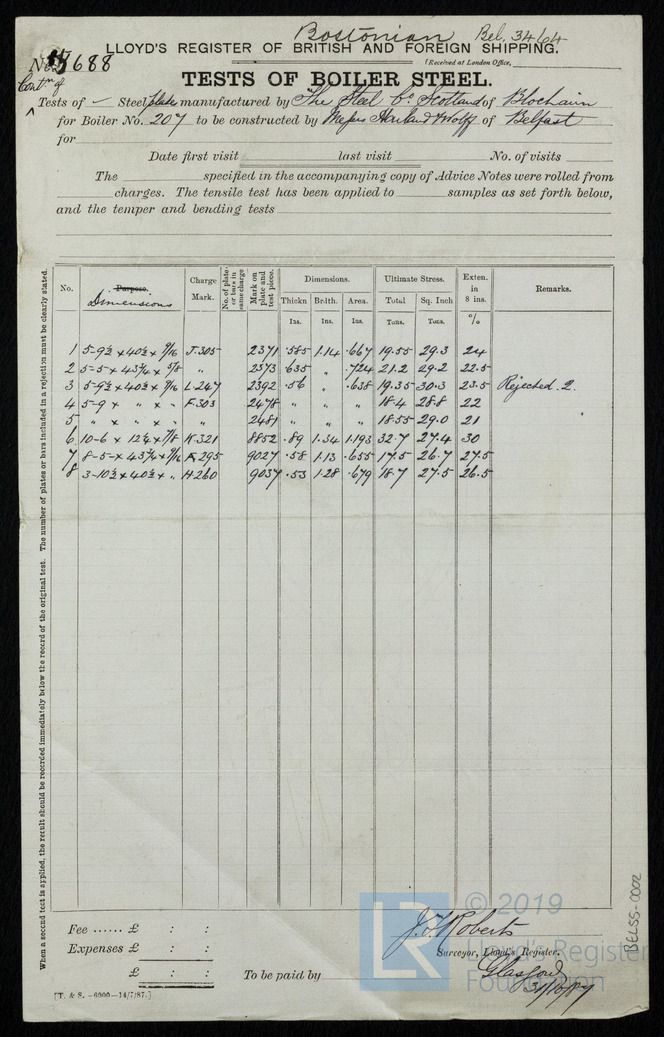 Bostonian Bel. 3464
No. 7688 LLOYD'S REGISTER OF BRITISH AND FOREIGN SHIPPING.
(Received at London Office,
Contn of TESTS OF BOILER STEEL.
Tests of – Steel plates manufactured by The Steel Co Scotland of Blochairn
for Boiler No. 207 to be constructed by Messrs Harland & Wolff of Belfast
for
Date first visit last visit No. of visits
The specified in the accompanying copy of Advice Notes were rolled from
charges. The tensile test has been applied to samples as set forth below,
and the temper and bending tests
No. Purpose. Dimensions Charge Mark. No. of plates or bars in same charge Mark on plate and test piece. Dimensions. Ultimate Stress. Exten. in 8 ins. Remarks.
Thickn Br'dth. Area. Total Sq. Inch
Ins. Ins. Ins. Tons. Tons. %
1 5-9½ x 40½ x 9/16 J.305 2371 .585 1.14 .667 19.55 29.3 24
2 5-5 x 43¾ x 5/8 " 2373 .635 " .724 21.2 29.2 22.5
3 5-9½ x 40½ x 9/16 L.247 2392 .56 " .638 19.35 30.3 23.5 Rejected. 2.
4 5-9 x " x " F.303 2478 " " " 18.4 28.8 22
5 " x " x " " 2481 " " " 18.55 29.0 21
6 10-6 x 12¼ x 7/8 K.321 8852 .89 1.34 1.193 32.7 27.4 30
7 8-5 x 43¾ x 9/16 F.295 9027 .58 1.13 .655 17.5 26.7 27.5
8 3-10½ x 40½ x " H260 9037 .53 1.28 .679 18.7 27.5 26.5
When a second test is applied, the result should be recorded immediately below the record of the original test. The number of plates or bars included in a rejection must be clearly stated.
Fee ...... £ : :
Expenses £ : :
£ : :
To be paid by
J. T. Roberts
Surveyor, Lloyd's Register.
Glasgow
31/10/87
[T. & S. –6000–14/7/87.]
BELSS-0002
LR © 2019
Lloyd's Register
Foundation